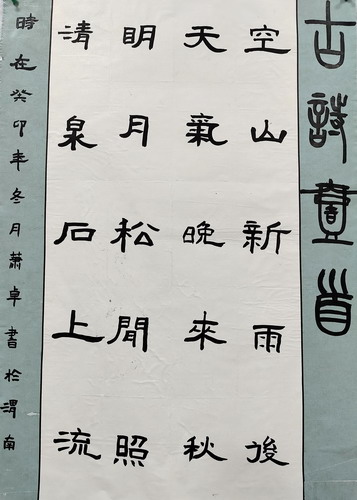 古詩壹首
空山新雨後
天氣晚來秋
明月松間照
清泉石上流
時在癸卯年冬月蕭卓書於渭南